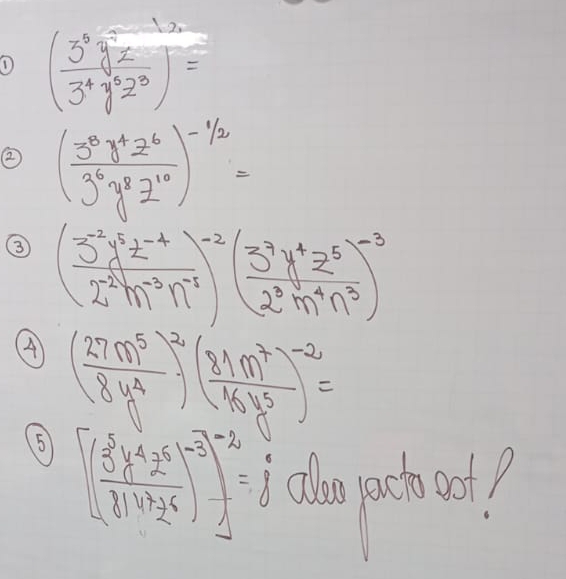 ① (3⁵ y z / 3⁴ y⁵ z³)² =
② (3⁸ y⁴ z⁶ / 3⁶ y⁸ z¹⁰)^(-1/2) =
③ (3⁻² y⁵ z⁻⁴ / 2⁻² m⁻³ n⁻⁵)⁻² (3⁷ y⁴ z⁵ / 2³ m⁴ n³)⁻³
④ (27 m⁵ / 8 y⁴)² · (81 m⁷ / 16 y⁵)⁻² =
⑤ [(3⁵ y⁴ z⁶ / 81 y⁷ z⁶)⁻³]⁻² = ¡ alea jacta est !